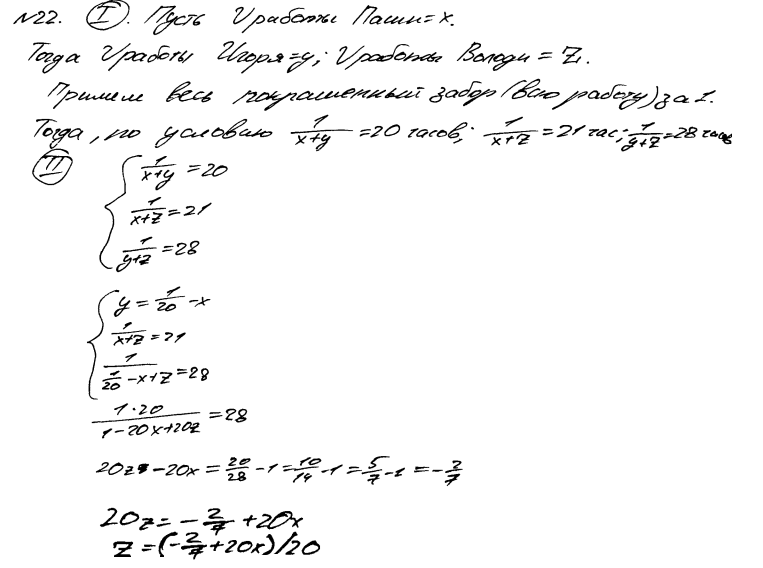 №22. I. Пусть Vработы Паши=x.
Тогда Vработы Игоря=y; Vработы Володи=Z.
Примем весь покрашенный забор (всю работу) за 1.
Тогда, по условию 1/(x+y) =20 часов; 1/(x+z) =21 час; 1/(y+z) =28 часов
II
{ 1/(x+y) =20
1/(x+z) =21
1/(y+z) =28
{ y = 1/20 -x
1/(x+z) =21
1/(1/20 -x+z) =28
1·20/(1-20x+20z) =28
20z -20x = 20/28 -1= 10/14 -1= 5/7 -1 = - 2/7
20z= - 2/7 +20x
z=(- 2/7 +20x)/20